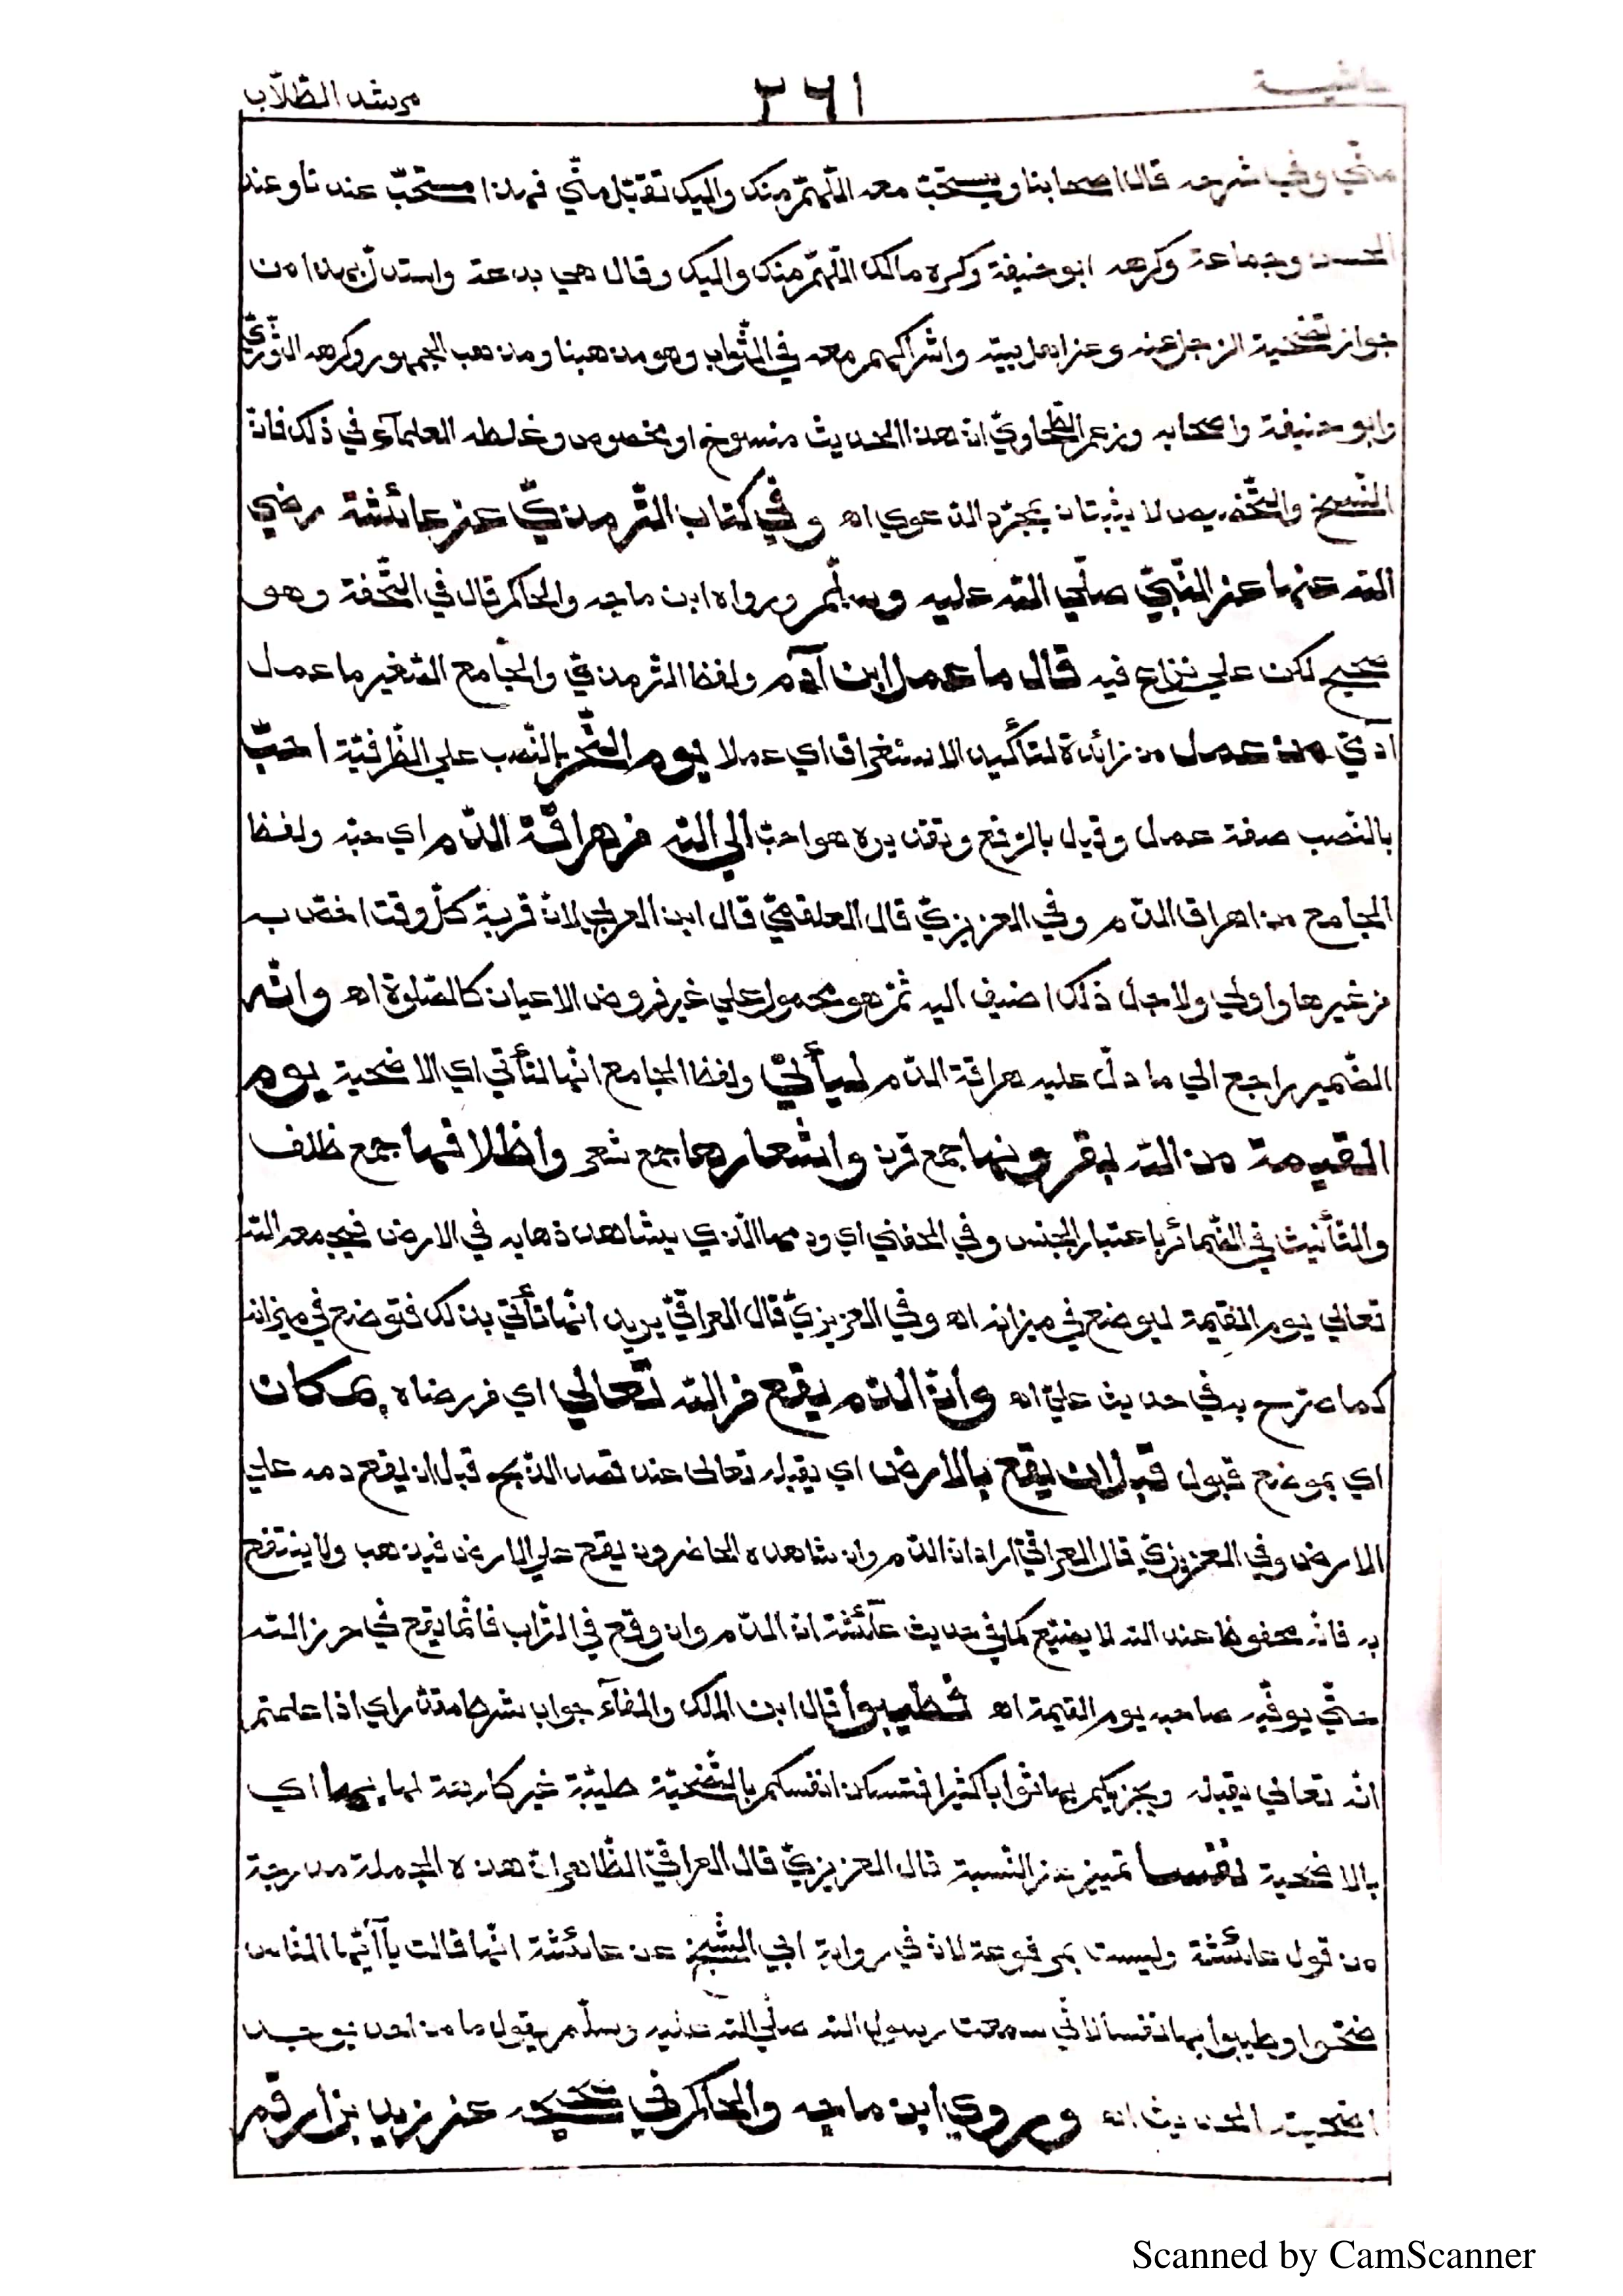 حاشية ٣٦١ مرشد الطّلّاب
منّي وفي شرحه قال اصحابنا ويستحبّ معه اللّهمّ منك واليك تقبّل منّي فهذا مستحبّ عندنا وعند
الحسن وجماعة وكرهه ابو حنيفة وكره مالك اللّهمّ منك واليك وقال هي بدعة واستدلّ بهذا من
جواز تضحية الرجل عنه وعن اهل بيته واشراكهم معه في الثّواب وهو مذهبنا ومذهب الجمهور وكرهه الثّوريّ
وابو حنيفة واصحابه وزعم الطّحاويّ ان هذا الحديث منسوخ او مخصوص وغلطه العلمآء في ذلك فانّ
النّسخ والتّخصيص لا يثبتان بمجرّد الدّعوي اه وفي كتاب التّرمذيّ عن عائشة رضي
الله عنها عن النّبيّ صلّي الله عليه وسلّم ورواه ابن ماجه والحاكم قال في التّحفة وهو
صحيح لكن علي نزاع فيه قال ما عمل ابن آدم ولفظ الترمذي والجامع الصّغير ما عمل
ادميّ من عمل من زائدة لتأكيد الاستغراق اي عملا يوم النّحر بالنّصب علي الظّرفيّة احبّ
بالنّصب صفة عمل وقيل بالرّفع وتقديره هو احبّ الي الله من هراقة الدّم اي حبّه ولفظ
الجامع من اهراق الدّم وفي العزيزيّ قال العلقميّ قال ابن العربي لانّ قربة كلّ وقت اخصّ به
من غيرها واولي ولاجل ذلك اضيف اليه ثمّ هو محمول علي غير فروض الاعيان كالصّلوة اه وانّه
الضّمير راجع الي ما دلّ عليه هراقة الدّم ليأتي ولفظ الجامع انّها لتأتي اي الاضحية يوم
القيمة من الله بقرونها جمع قرن واشعارها جمع شعر واظلافها جمع ظلف
والتّأنيث في الضّمائر باعتبار الجنس وفي الحفني اي ودمها الّذي يشاهد ذهابه في الارض فيجمعه الله
تعالي يوم القيمة ليوضع في ميزانه اه وفي العزيزيّ قال العراقيّ يريد انّها تأتي بذلك فتوضع في ميزانه
كما صرّح به في حديث عليّ اه وانّ الدّم يقع من الله تعالي اي من رضاه بمكان
اي بموضع قبول قبل ان يقع بالارض اي يقبله تعالى عند قصد الذّبح قبل ان يقع دمه علي
الارض وفي العزيزيّ قال العراقيّ اراد ان الدّم وان شاهده الحاضرون يقع علي الارض فيذهب ولا ينتفع
به فانّه محفوظ عند الله لا يضيّع كما في حديث عآئشة انّ الدّم وان وقع في التّراب فانّما يقع في حرز الله
حتّي يوفّيه صاحبه يوم القيمة اه فطيبوا قال ابن الملك والفآء جواب شرط مقدّر اي اذا علمتم
انّه تعالي يقبله ويجزيكم بها ثوابا كثيرا فتسكن انفسكم بالتّضحيّة طيّبة غير كارهة لها بها اي
بالاضحية نفسا تمييز عن النّسبة قال العزيزيّ قال العراقيّ الظّاهر انّ هذه الجملة مدرجة
من قول عائشة وليست بمرفوعة لانّ في رواية ابي الشّيخ عن عائشة انّها قالت يآ أيّها النّاس
ضحّوا وطيبوا بها نفسا لانّي سمعت رسول الله صلّي الله عليه وسلّم يقول ما من احد يوجه
اضحيته الحديث اه وروي ابن ماجه والحاكم في صحيحه عن زيد بن ارقم
Scanned by CamScanner